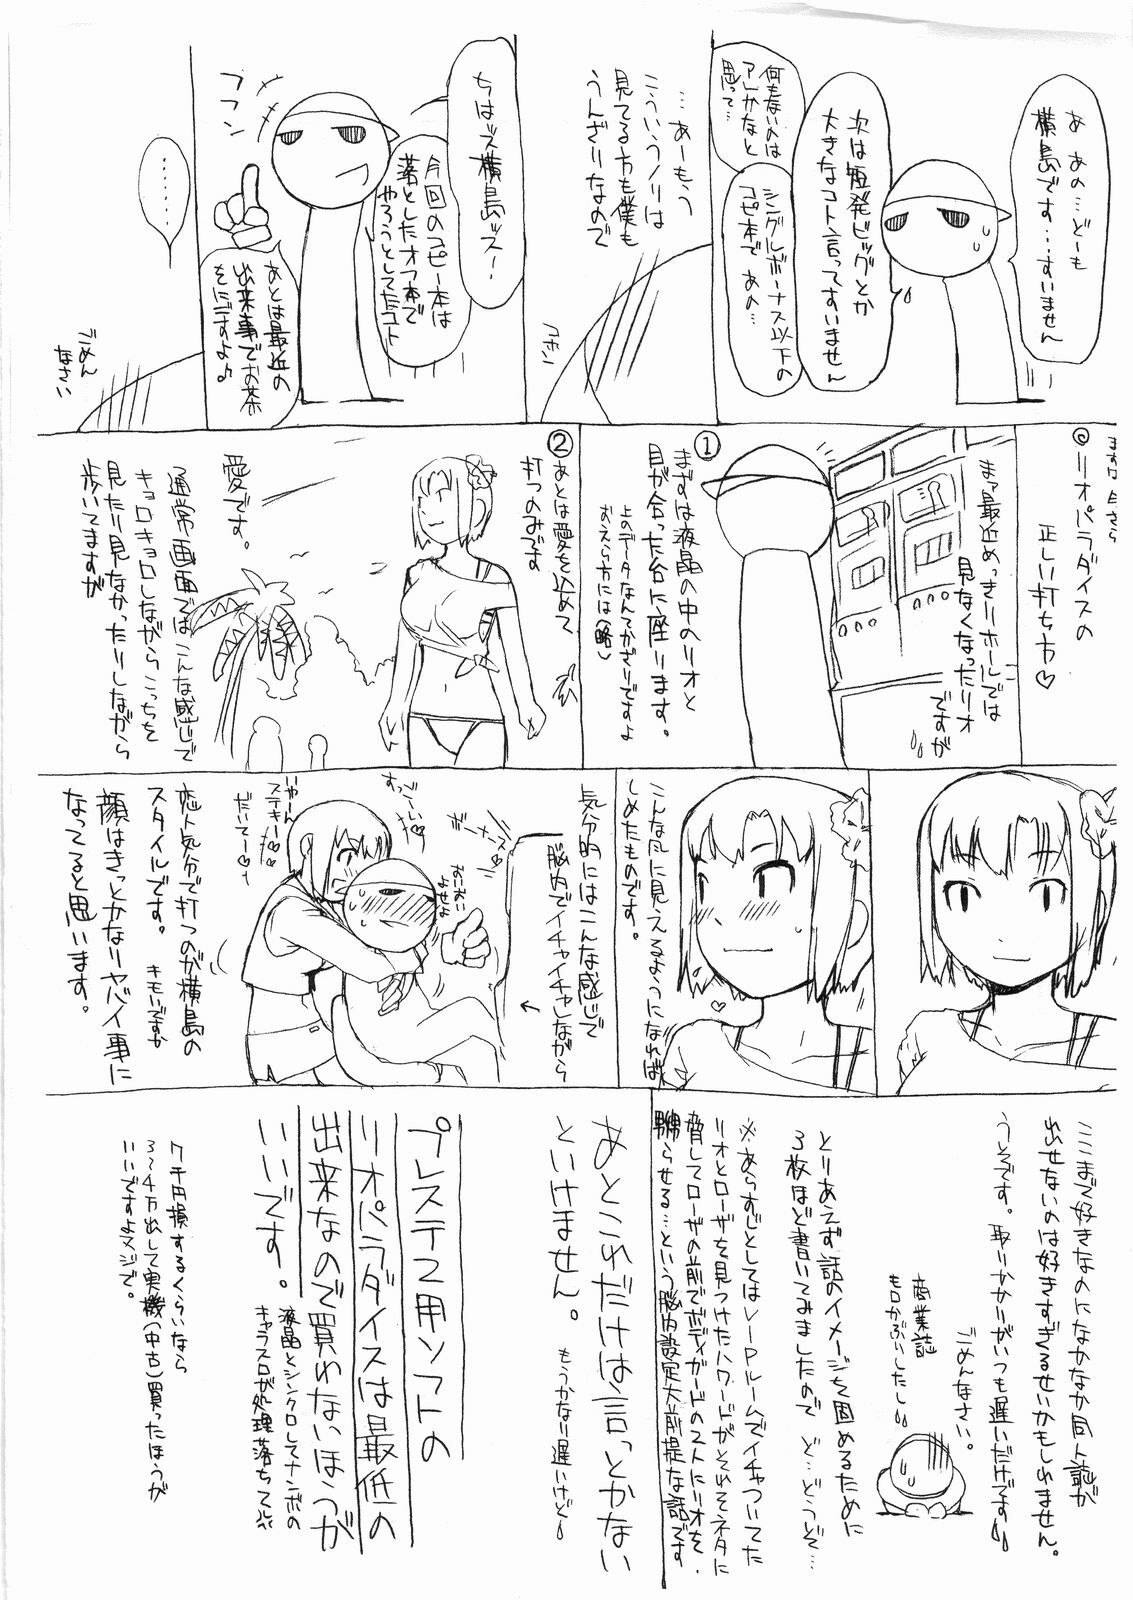 あ あの…どーも
横島です…すいません
次は短発ビッグとか
大きなコト言ってすいません
何もないのは
アレかなと
思って…
シングルボーナス以下の
コピ本で あの…
…あーもう
こういうノリは
見てる方も僕も
うんざりなので
コホン
ちはッス横島ッスー
今回のコピー本は
落としたオフ本で
やろうとしてたコト
フフン
あとは最近の
出来事でお茶
をにごすよ♪
………
ごめん
なさい
まずは今さら
◎リオパラダイスの
正しい打ち方♡
まァ最近めっきりホールでは
見なくなったリオ
ですが
①
まずは液晶の中のリオと
目が合った台に座ります。
上のデータなんてかざりですよ
おえら方には(略)
②
あとは愛を込めて
打つのみです
愛です。
通常画面ではこんな感じで
キョロキョロしながらこっちを
見たり見なかったりしながら
歩いてますが
こんな風に見えるようになれば
しめたものです。
気分的にはこんな感じで
脳内でイチャイチャしながら
ボーナスー
すっごーいー♡
いやーん
ステキー♡
だいてー♡
恋人気分で打つのが横島の
スタイルです。
キモいですか
顔はきっとかなりヤバイ事に
なってると思います。
ここまで好きなのになかなか同人誌が
出せないのは好きすぎるせいかもしれません。
うそです。取りかかりがいつも遅いだけです
ごめんなさい。
商業誌
もロかぶりしたし
とりあえず話のイメージを固めるために
3枚ほど書いてみましたので ど…どうぞ…
※あらすじとしてはVIPルームでイチャついてた
リオとローザを見つけたハワードがそれをネタに
脅してローザの前でボディガードのストにリオを
嬲らせる…という脳内設定大前提な話です
あとこれだけは言っとかない
といけません。
もうかなり遅いけど
プレステ2用ソフトの
リオパラダイスは最低の
出来なので買わないほうが
いいです。
液晶とシンクロしてナンボの
キャラスロが処理落ちって
7千円損するくらいなら
3〜4万出して実機(中古)買ったほうが
いいですよマジで。